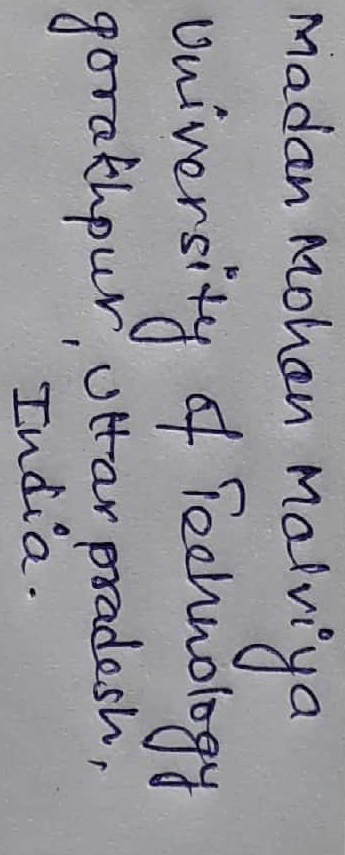 Madan Mohan Malviya
University of Technology
gorakhpur, Uttar pradesh,
India.